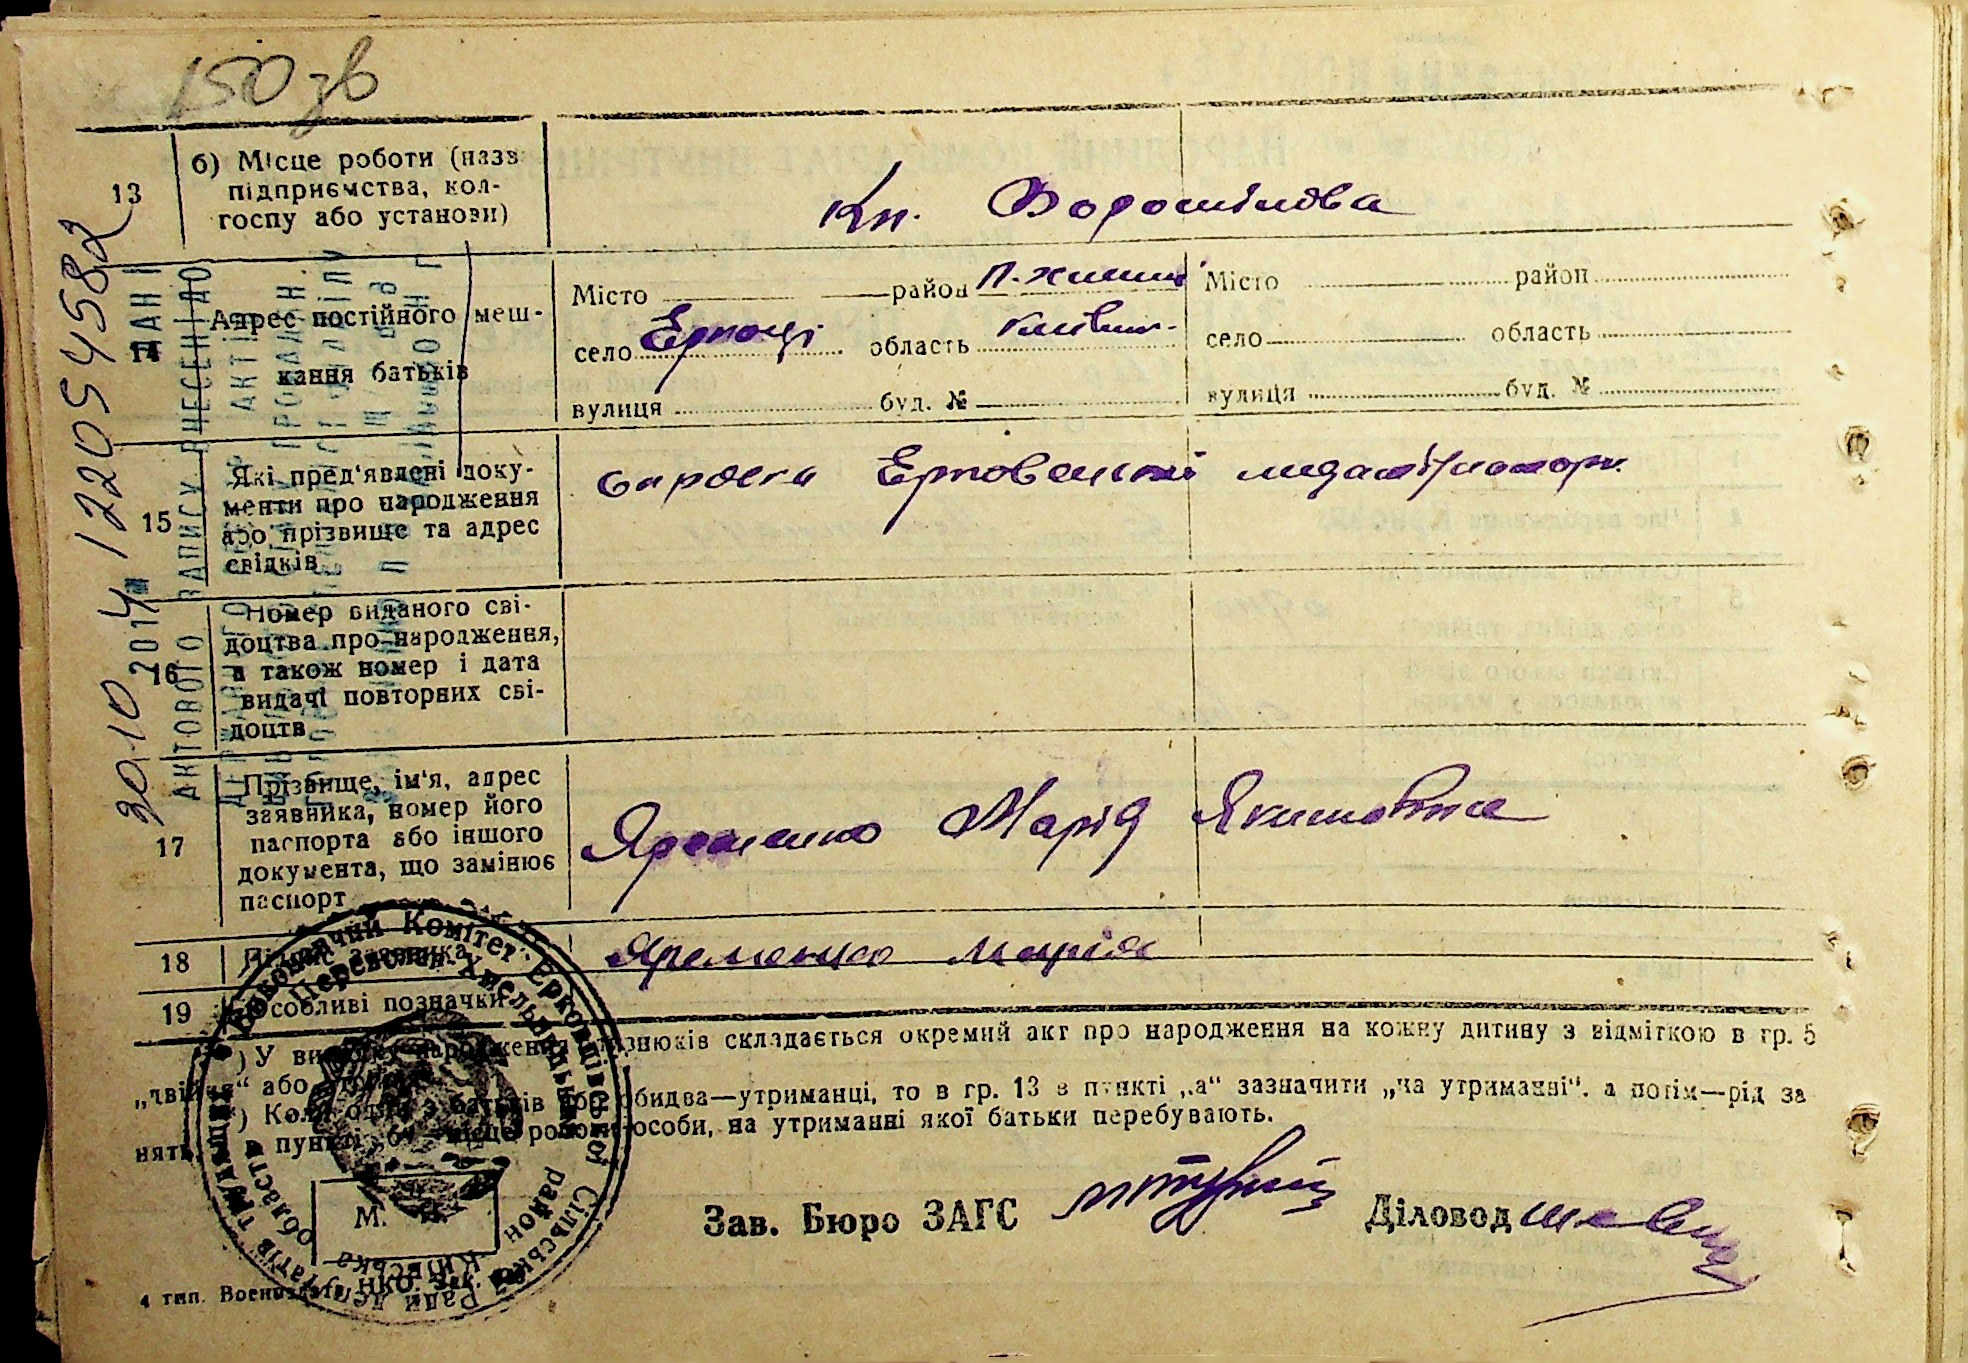 150 зв
13 б) Місце роботи (назв підприємства, кол-госпу або установи)
Кп. Ворошілова
14 Адрес постійного меш-кання батьків
Місто район П.-Хмельн
село Ерковці область Київськ.
вулиця буд. №
Місто район
село область
вулиця буд. №
15 Які пред'явлені доку-менти про народження або прізвище та адрес свідків
справка
16 Номер виданого сві-доцтва про народження, а також номер і дата видачі повторних сві-доцтв
17 Прізвище, ім'я, адрес заявника, номер його паспорта або іншого документа, що замінює паспорт
Яременко Марія Якимовна
18 Підпис заявника
Яременко Марія
19 Особливі позначки
) У випадку народження близнюків складається окремий акт про народження на кожну дитину з відміткою в гр. 5
„двійня“ або
) Коли один з батьків або обидва—утриманці, то в гр. 13 в пункті „а“ зазначити „на утриманні“, а потім—рід за
нять, в пункті „б“ місце роботи особи, на утриманні якої батьки перебувають.
Зав. Бюро ЗАГС
Діловод
М. П.
4 тип. НКО. Зак.
Виконавчий Комітет Ерковцівської Сільської Ради депутатів трудящих
Переяслав-Хмельницький район Київська область
30.10 2014 12205458
АКТОВОГО ЗАПИСУ ВНЕСЕНІ ДО